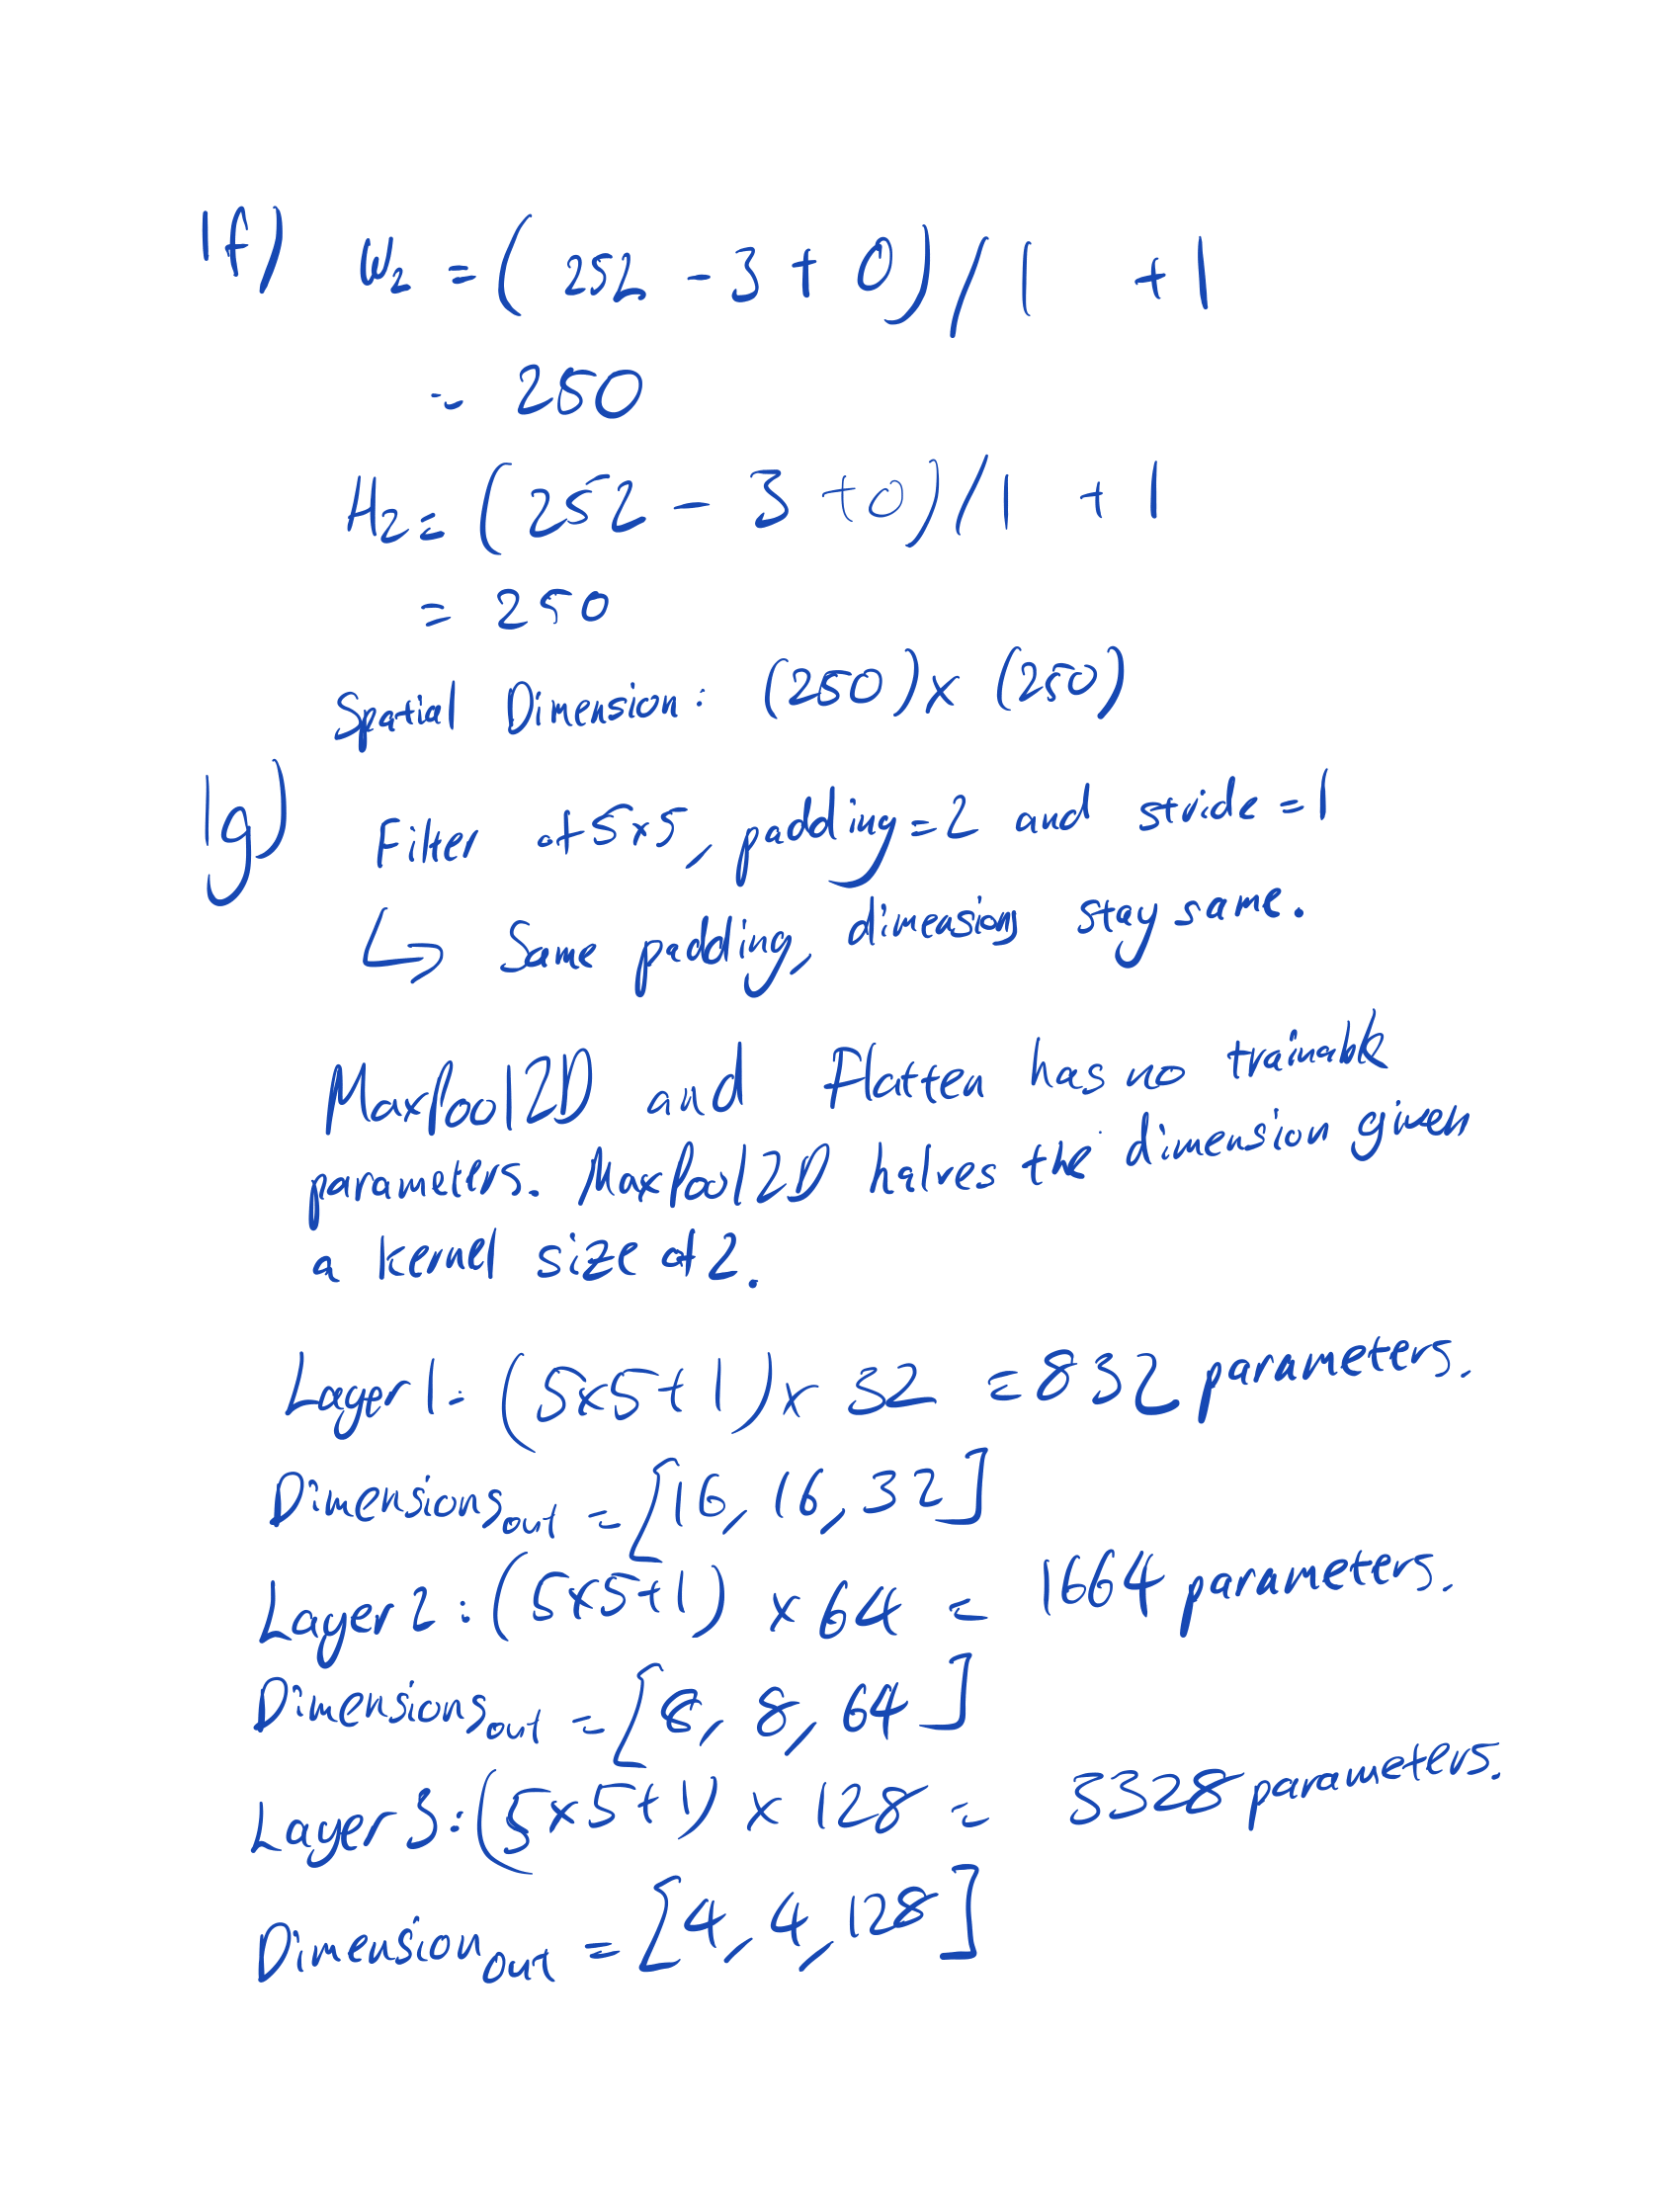 1f) W2 = (252 - 3 + 0) / 1 + 1
= 250
H2 = (252 - 3 + 0) / 1 + 1
= 250
Spatial Dimension: (250) x (250)
1g) Filter of 5x5, padding = 2 and stride = 1
↳ Same padding, dimensions stay same.
MaxPool2D and Flatten has no trainable
parameters. MaxPool2D halves the dimension given
a kernel size of 2.
Layer 1: (5x5+1) x 32 = 832 parameters.
Dimensions out = [16, 16, 32]
Layer 2: (5x5+1) x 64 = 1664 parameters.
Dimensions out = [8, 8, 64]
Layer 3: (5x5+1) x 128 = 3328 parameters.
Dimension out = [4, 4, 128]